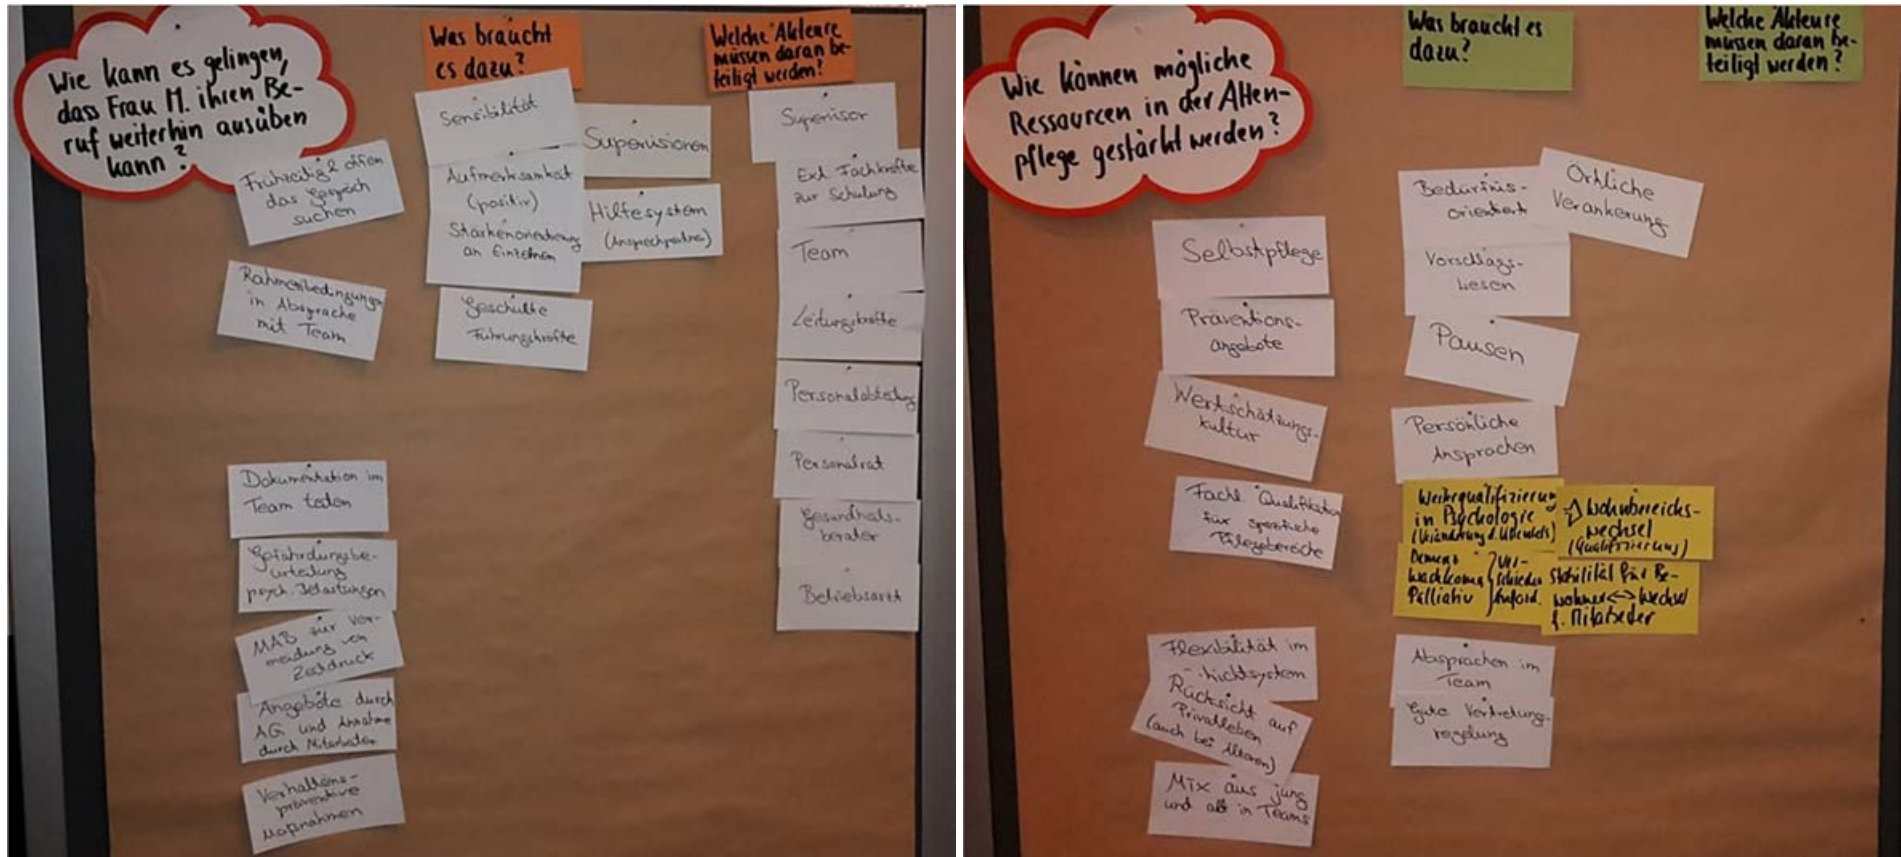 Wie kann es gelingen,
dass Frau M. ihren Be-
ruf weiterhin ausüben
kann?
Frühzeitig & offen
das Gespräch
suchen
Rahmenbedingungen
in Absprache
mit Team
Dokumentation im
Team
Gefährdungsbe-
urteilung
psych. Belastungen
MAB zur Ver-
meidung von
Zeitdruck
Angebote durch
AG und Annahme
durch Mitarbeiter
Verhaltens-
präventive
Maßnahmen
Was braucht
es dazu?
Sensibilität
Aufmerksamkeit
(positiv)
Stärkenorientierung
an Einzelnen
Geschulte
Führungskräfte
Supervisionen
Hilfesystem
(Ansprechpartner)
Welche Akteure
müssen daran be-
teiligt werden?
Supervisor
Ext. Fachkräfte
zur Schulung
Team
Leitungskräfte
Personalabteilung
Personalrat
Gesundheits-
berater
Betriebsarzt
Wie können mögliche
Ressourcen in der Alten-
pflege gestärkt werden?
Selbstpflege
Präventions-
angebote
Wertschätzungs-
kultur
Fachl. Qualifikation
für spezifische
Pflegebereiche
Flexibilität im
chichtsystem
Rücksicht auf
Privatleben
(auch bei Älteren)
Mix aus jung
und alt in Teams
Was braucht es
dazu?
Bedürfnis-
orientiert
Örtliche
Verankerung
Vorschlags-
wesen
Pausen
Persönliche
Ansprachen
Weiterqualifizierung
in Psychologie
(Veränderung d.
Demenz
Wachkoma
Palliativ
ver-
schieden
Anford.
Wohnbereichs-
wechsel
(Qualifizierung)
Stabilität für Be-
wohner <=> Wechsel
f. Mitarbeiter
Absprachen im
Team
Gute Vertretungs-
regelung
Welche Akteure
müssen daran be-
teiligt werden?